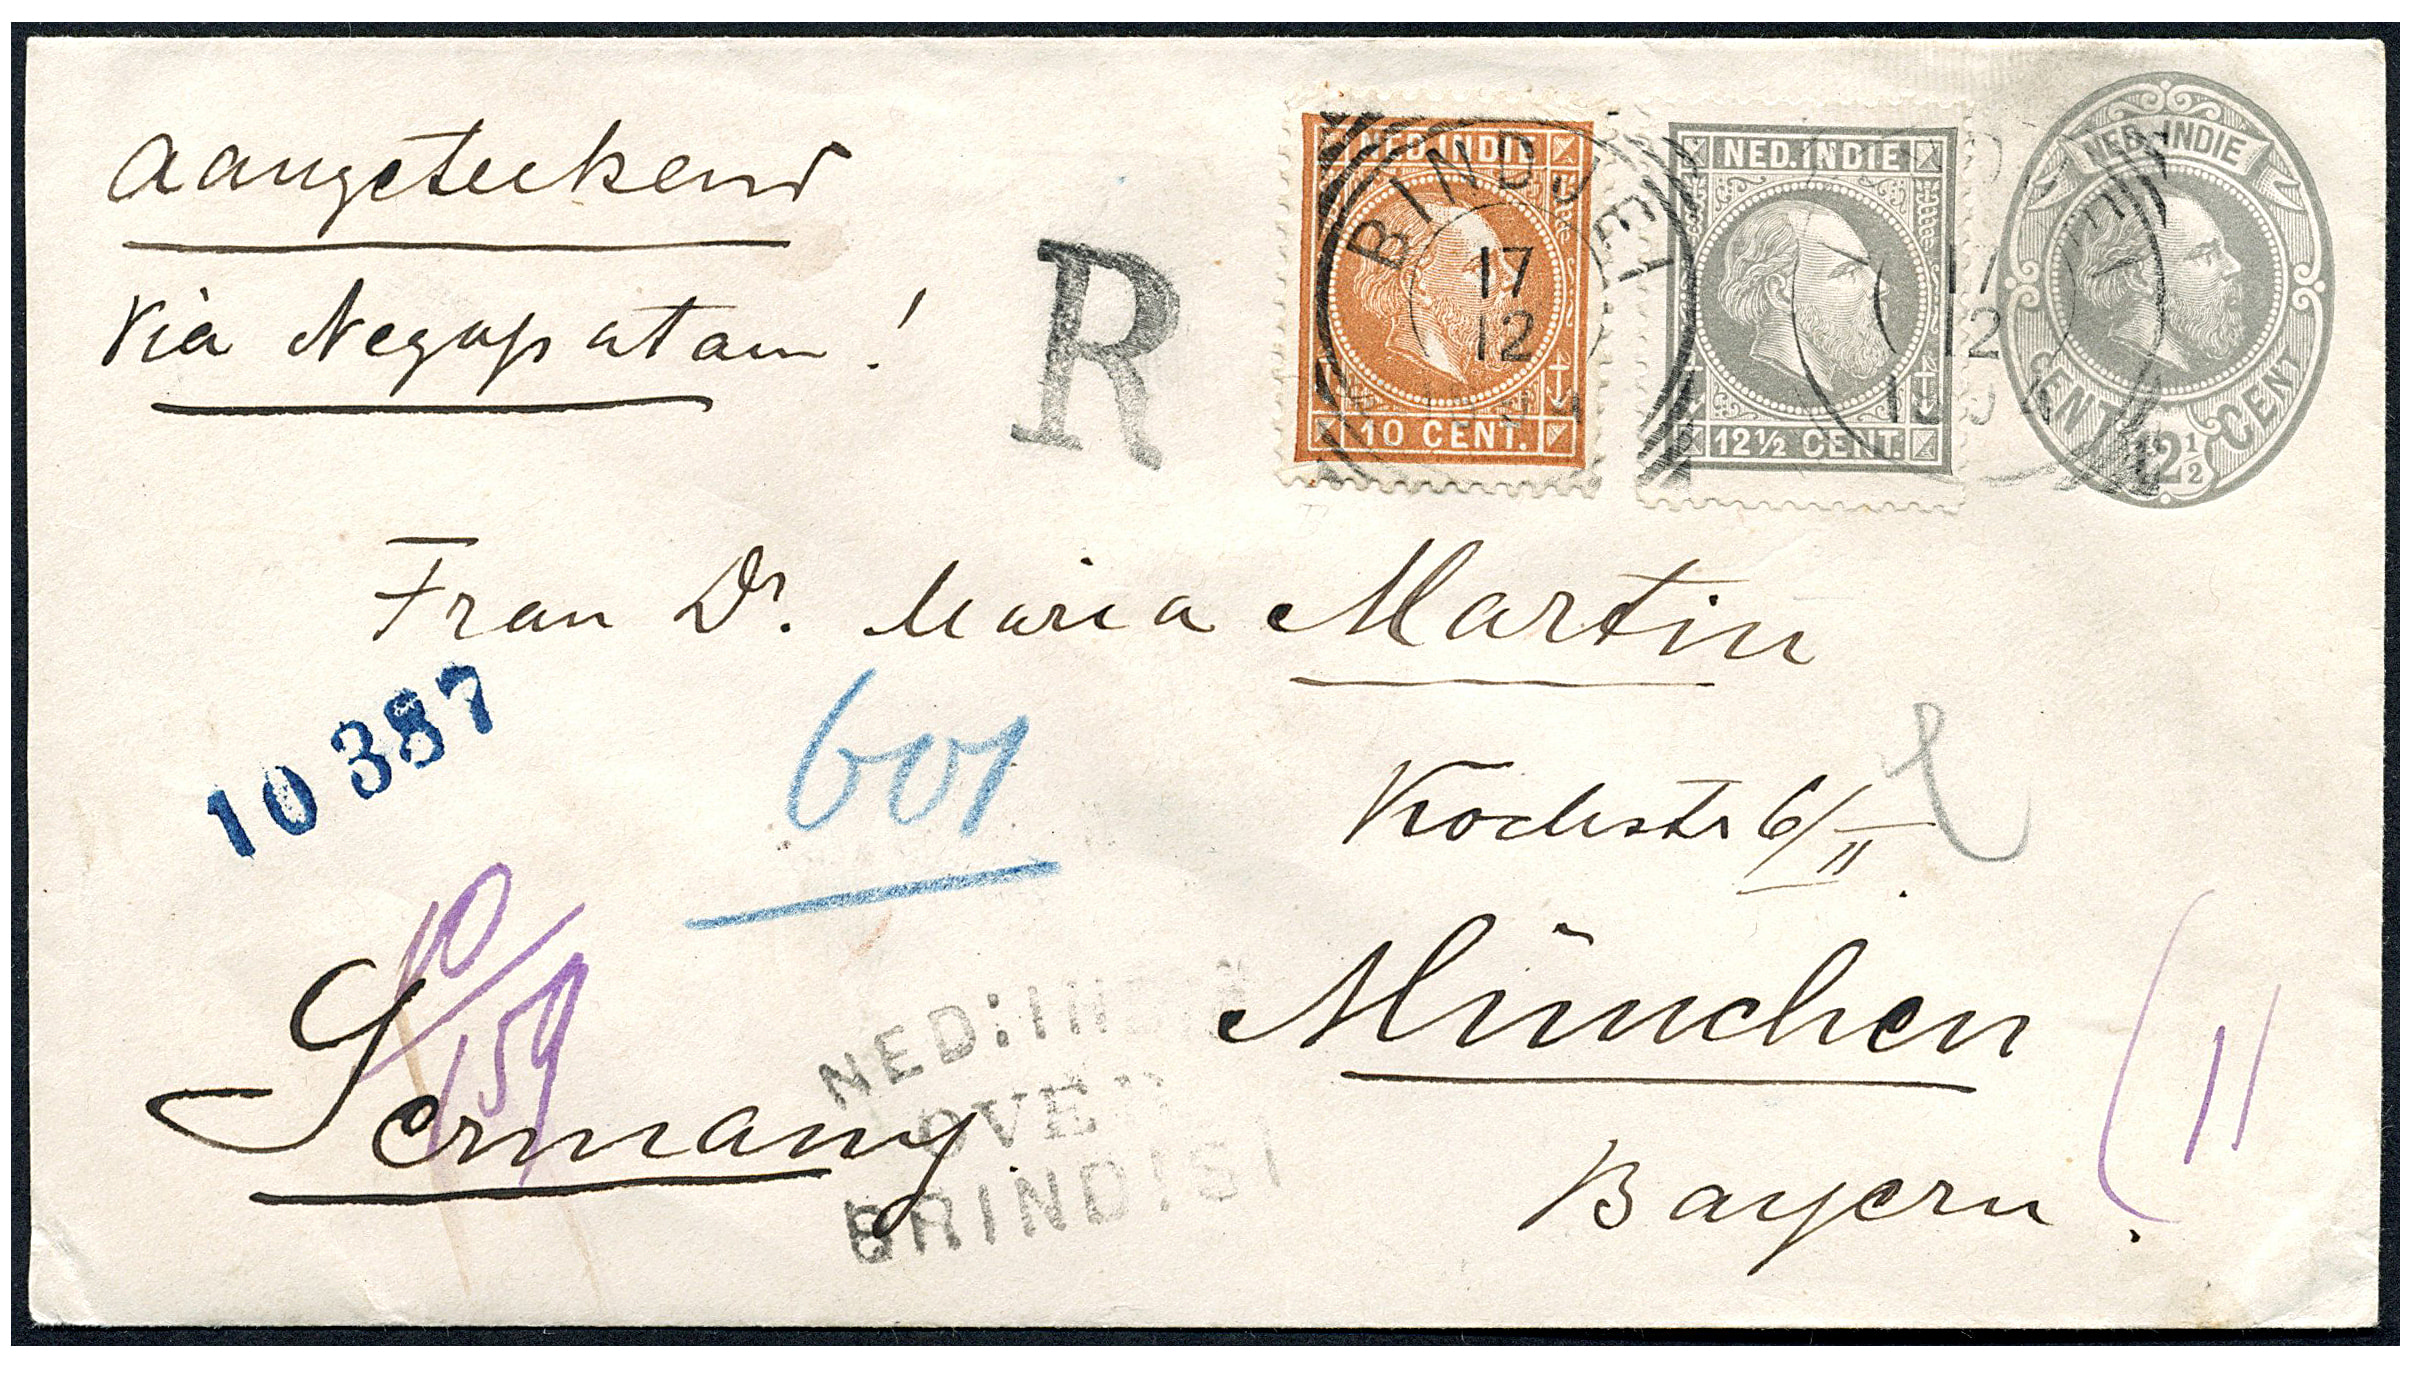 Aangeteekend
Via Negapatam!
R
NED. INDIE
10 CENT.
BINDJEI
17
12
NED. INDIE
12½ CENT.
17
12
NED. INDIE
CENT 12½ CENT
Frau Dr. Maria Martin
10387
601
Kochstr 6/II
10/159
München
Germany
NED: IN
OVE
BRINDISI
Bayern.
11